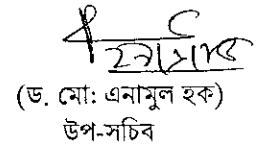 (ড. মো: এনামুল হক)
উপ-সচিব